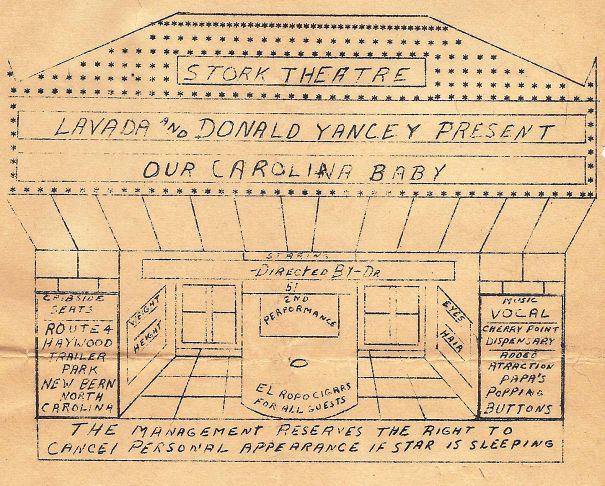 STORK THEATRE
LAVADA AND DONALD YANCEY PRESENT
OUR CAROLINA BABY
STARING
-DIRECTED BY-DR
51
2ND
PERFORMANCE
CRIBSIDE
SEATS
ROUTE 4
HAYWOOD
TRAILER
PARK
NEW BERN
NORTH
CAROLINA
WEIGHT
HEIGHT
EYES
HAIR
EL ROPO CIGARS
FOR ALL GUESTS
MUSIC
VOCAL
CHERRY POINT
DISPENSARY
ADDED
ATRACTION
PAPA'S
POPPING
BUTTONS
THE MANAGEMENT RESERVES THE RIGHT TO
CANCEL PERSONAL APPEARANCE IF STAR IS SLEEPING